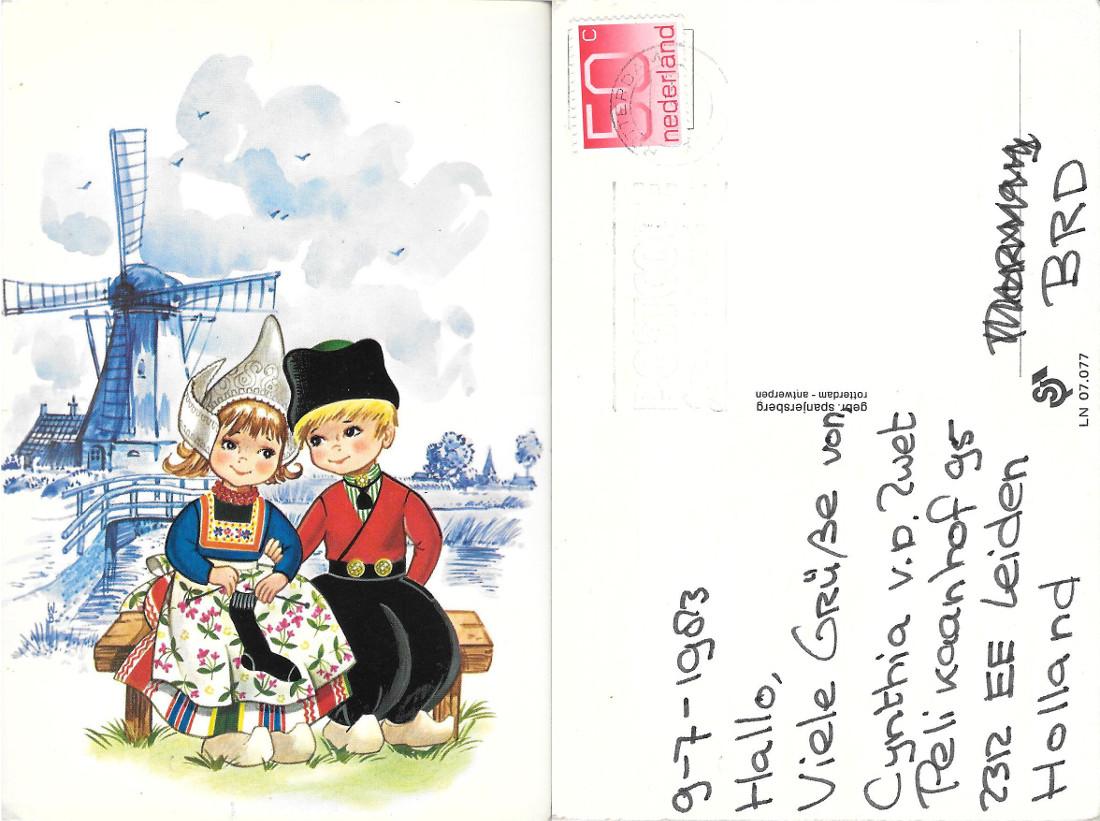 50 c
nederland
gebr. spanjersberg
rotterdam - antwerpen
9-7-1983
Hallo,
Viele Grüße von,
Cynthia v.D. Zwet
Pelikaanhof 95
2312 EE Leiden
Holland
BRD
LN 07.077